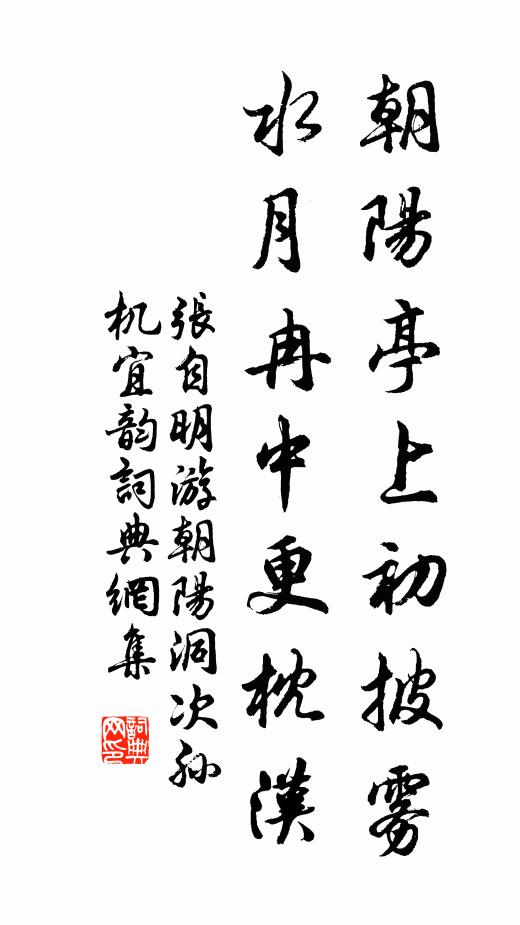 朝陽亭上初披雾
水月冉中更枕漢
張自明游朝陽洞次孙
机宜韵詞典網集
詞典网印